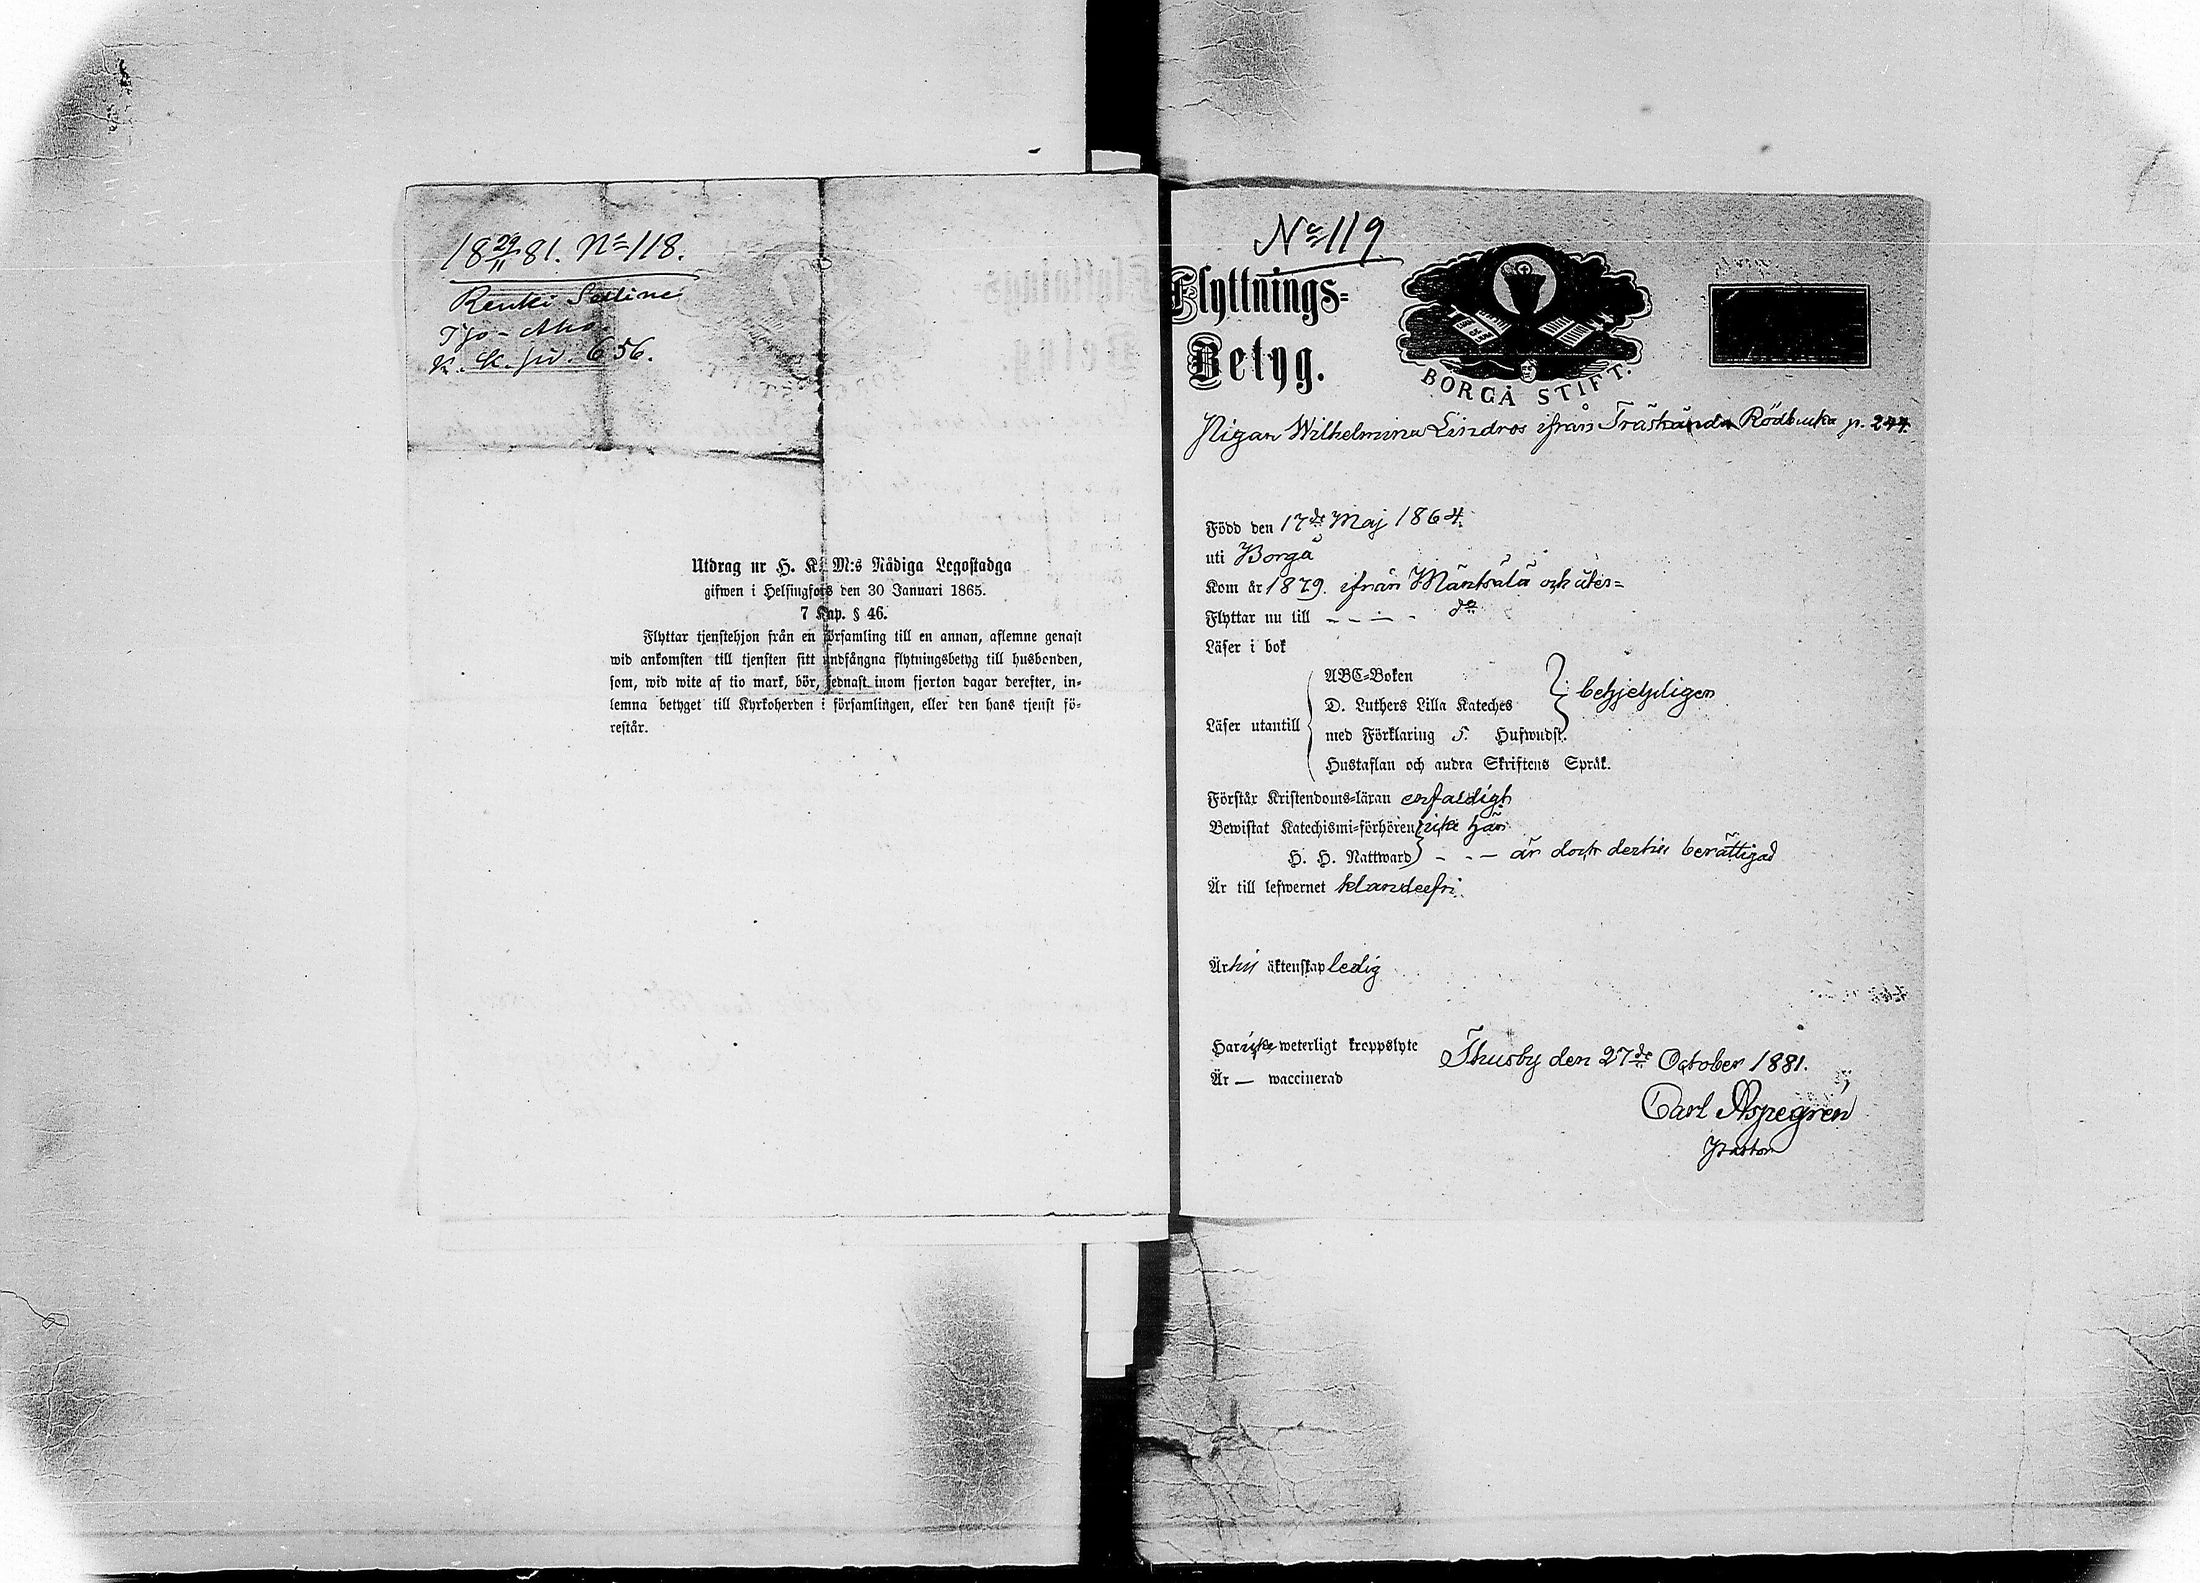 18 29/11 81. No 118.
Renki
K. K. siv. 656.
Utdrag ur H. K. M:s Nådiga Legostadga
gifwen i Helsingfors den 30 Januari 1865.
7 Kap. § 46.
Flyttar tjenstehjon från en församling till en annan, aflemne genast
wid ankomsten till tjensten sitt undfångna flytningsbetyg till husbonden,
som, wid wite af tio mark, bör, sednast inom fjorton dagar derefter, in-
lemna betyget till Kyrkoherden i församlingen, eller den hans tjenst fö-
restår.
No 119
Flyttnings-
Betyg.
BORGÅ STIFT.
Pigan Wilhelmina Lindros ifrån Träskända Rödbacka p. 244.
Född den 17de Maj 1864.
uti Borgå
Kom år 1879. ifrån Mäntsälä och åter-
Flyttar nu till - - - - do
Läser i bok
ABC-Boken
D. Luthers Lilla Kateches
behjelpligen
Läser utantill
med Förklaring 5. Hufwudst.
Hustaflan och andra Skriftens Språk.
Förstår Kristendoms-läran enfaldigt
Bewistat Katechismi-förhören icke här
H. H. Nattward - - - är dock dertill berättigad
Är till lefwernet klanderfri.
Är till äktenskap ledig
Har icke weterligt kroppslyte
Thusby den 27de October 1881.
Är — waccinerad
Carl Aspegren
Pastor